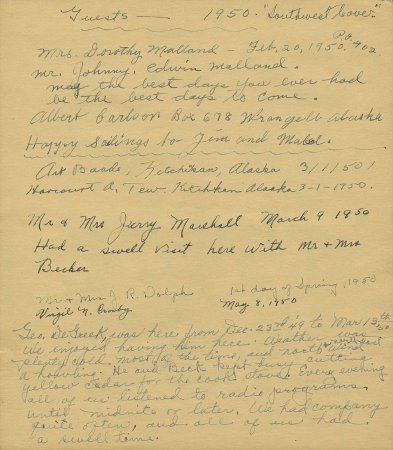 Guests — 1950. "Southwest Cove."
Mrs. Dorothy Malland - Feb. 20, 1950. P.O. 402
Mr. Johnny, Edwin Malland.
May the best days you ever had
be the best days to come.
Albert Carlson Box 678 Wrangell Alaska
Happy Sailings to Jim and Mabel.
Art Baado, Ketchikan, Alaska 3/1/50
Harcourt A. Tew. Ketchikan Alaska 3-1-1950.
Mr & Mrs Jerry Marshall March 9 1950
Had a swell visit here with Mr & Mrs
Becker
Mr & Mrs J. R. Dolph 1st day of Spring, 1950
Virgil N. Crosby May 8, 1950
Geo. DeGreek, was here from Dec. 23rd '49 to Mar 13th, 50
We enjoyed having him here. Weather was
plenty cold most of the time, and north wind
a howling. He and Beck kept busy cutting
yellow cedar for the cook stove. Every evening
all of us listened to radio programs
until midnite or later. We had company
quite often, and all of us had
a swell time.